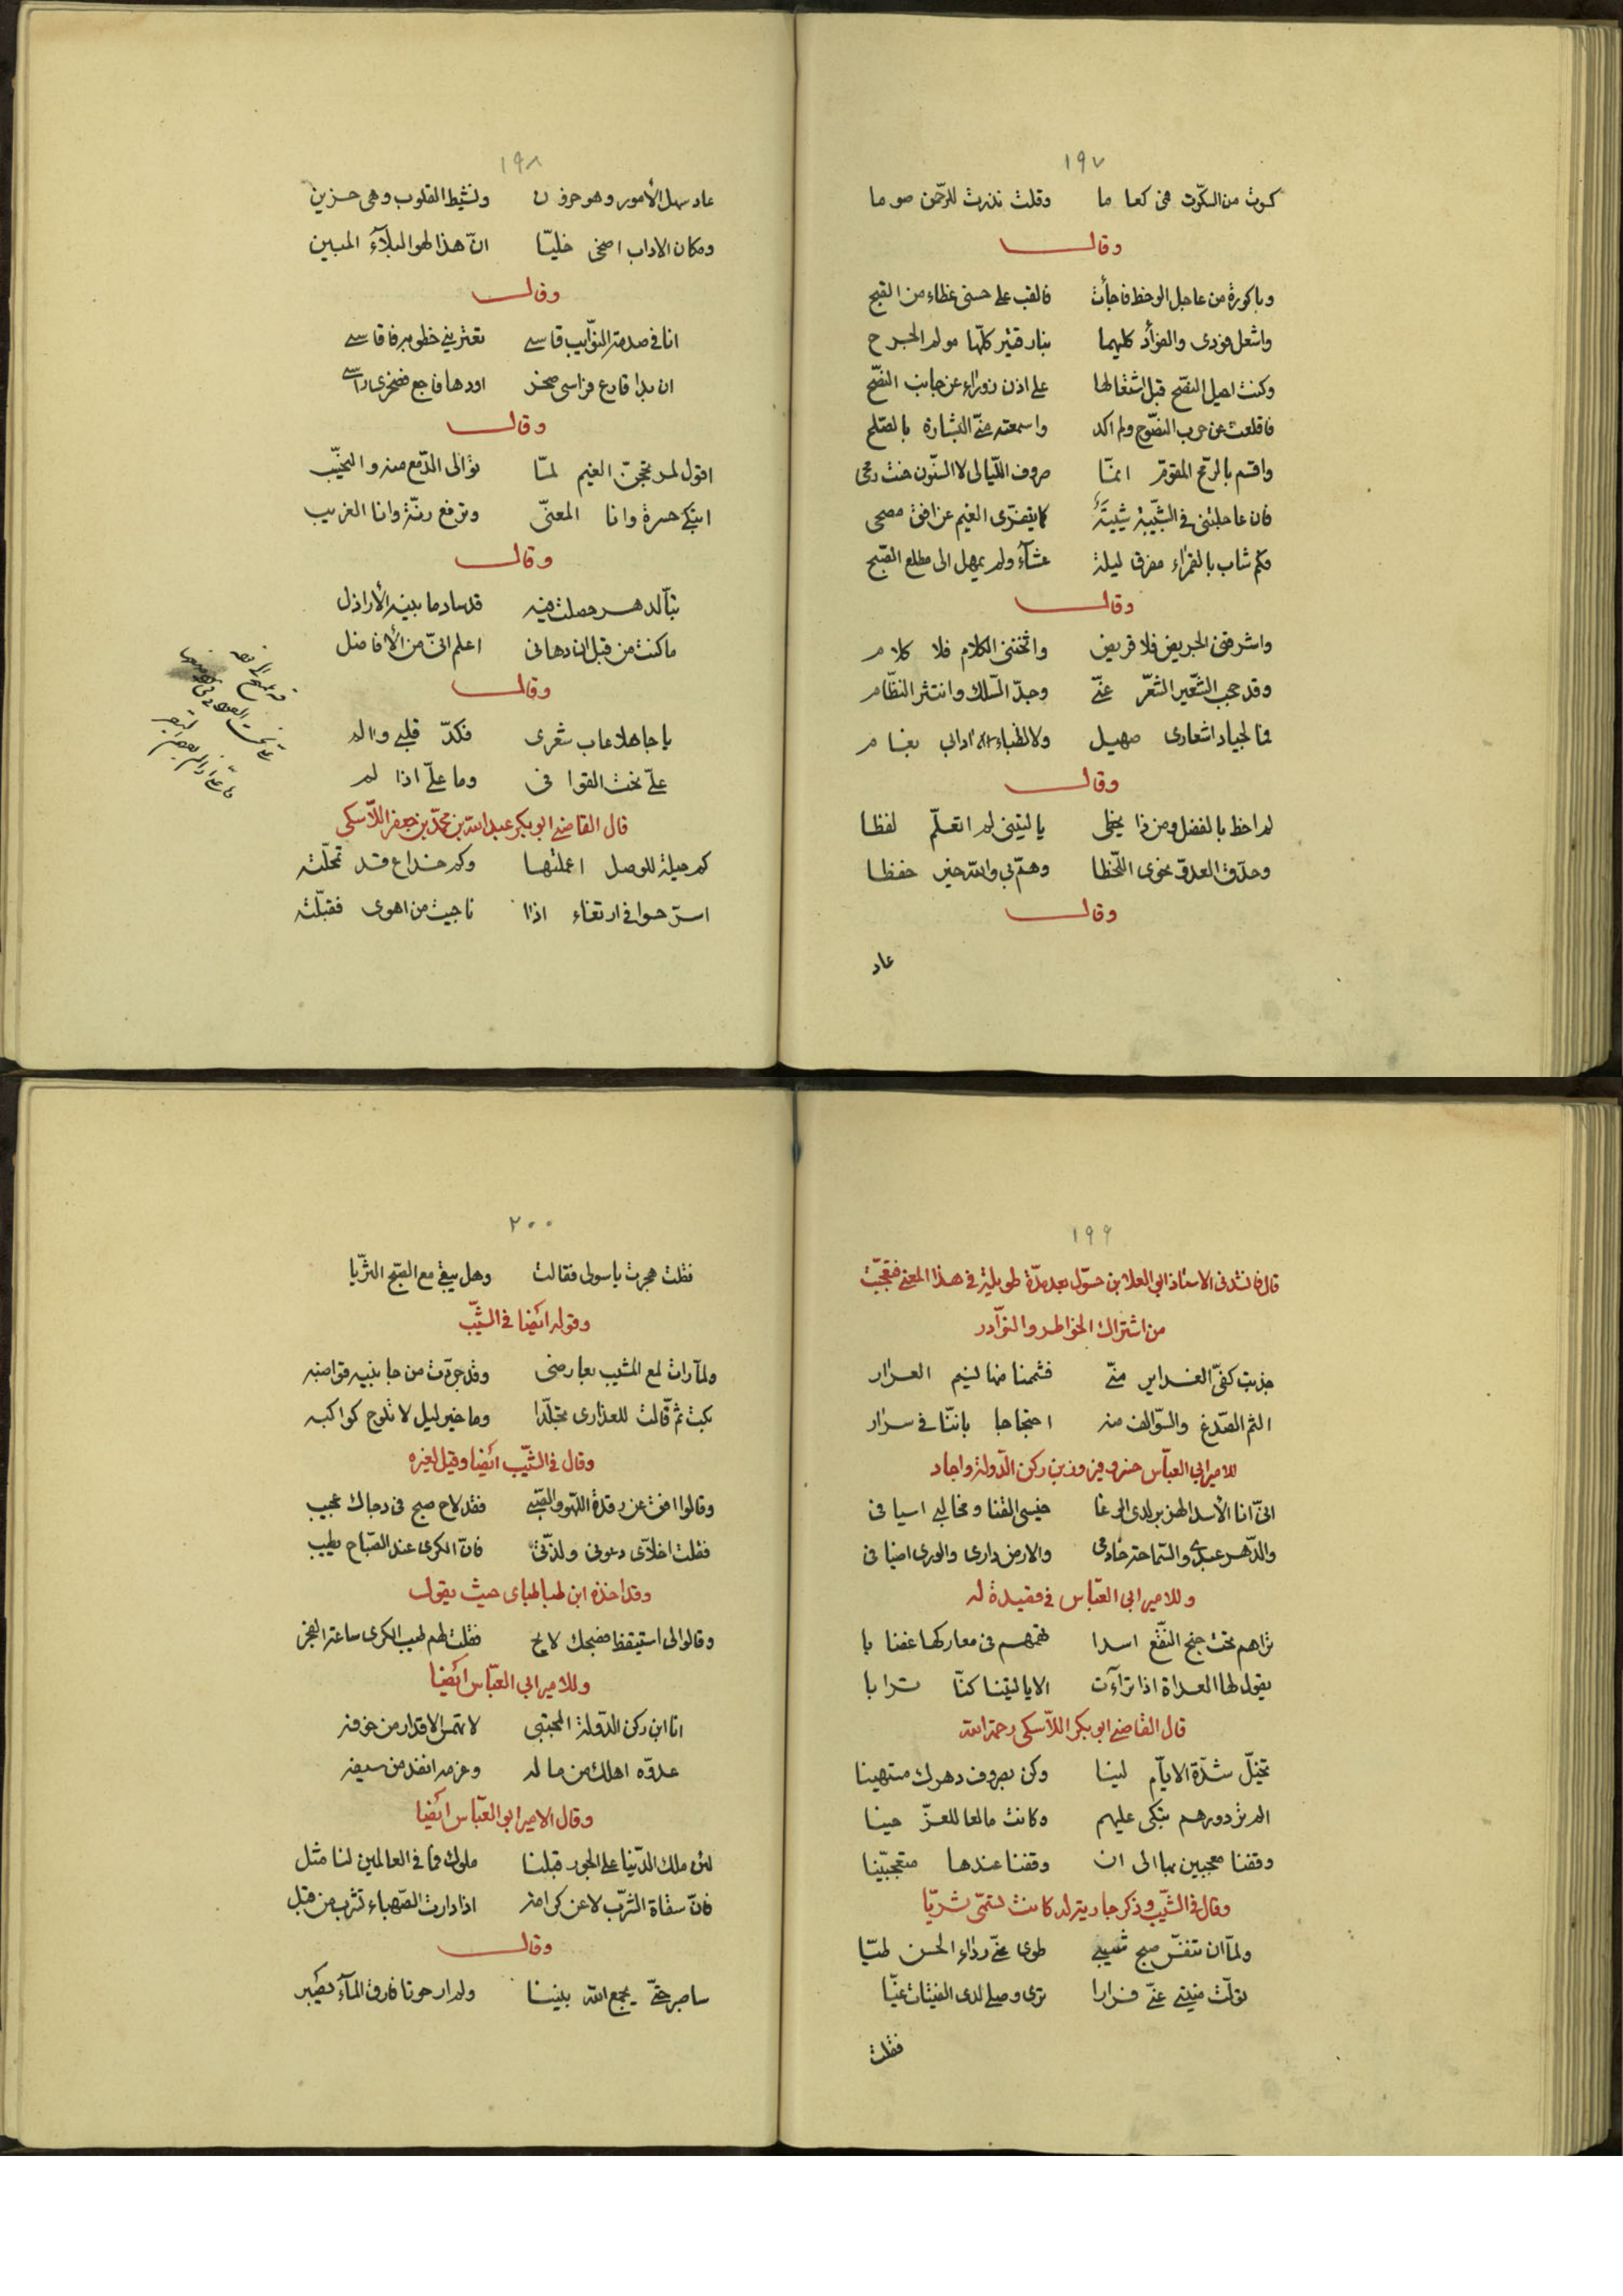 ١٩٧
كسوت من السكّوت في كعاما وقلت نذرت للرّحمن صوما
وقال
وباكورة من عاجل الوخط فاجأت فالقت على حسنى غطاء من القبح
واشعل فودى والفؤاد كليهما بنار قتير كلّها مولم الجرح
وكنت اميل النصح قبل اشتعالها على اذن زوراء عن جانب النصّح
فاقلعت عن حرب النصّوح ولم اكد واسمعته منّى البشارة بالصّلح
واقسم بالرّمح المقوّم انمّا صروف اللّيالى لا السّنون حنت رمحى
فان عاجلتنى فى الشّبيبة شيبةً كما يتفرّى الغيم عن افق مصحى
فكم شاب بالقمراء مفرق ليلة عشآءً ولم يمهل الى مطلع الصّبح
وقال
واشرقنى الجريض فلا قريض واثخننى الكلام فلا كلام
وقد حجب الشّعير الشّعر عنّى وجدّ السّلك وانتثر النظّام
فما لجياد اشعارى صهيل ولا لظباء آدابى بغام
وقال
لم احظ بالفضل ومن ذا يحظى يا ليتنى لم اتعلّم لفظا
وحدّق العدوّ نحوى اللّحظا وهمّ بى والله خير حفظا
وقال
عاد
١٩٨
عاد سهل الأمور وهو حزون ونشيط القلوب وهى حزين
ومكان الاداب اضحى خليّا انّ هذا لهو البلآء المبين
وقال
انا فى صدمة النوّايب قاسى تعترينى خطوبه فاقاسى
ان بدا قارع فراسى صخر اودها فاجع فصخرى راسى
وقال
اقول لمدّجن الغيم لمّا توالى الدّمع منه والنحيّب
اتبكى حسرة وانا المعنّى وترفع رنّة وانا الغريب
وقال
تبّا لدهر حصلت فيه قد ساد ما بينه الأراذل
ما كنت من قبل ان دهانى اعلم انّى من الأفاضل
وقال
يا جاهلا عاب شعرى فكدّ قلبى والم
علىّ نحت القوافى وما علىّ اذا لم
قال القاضى ابو بكر عبد الله بن محمّد بن جعفر اللآسكى
كم حيلة للوصل اعملتها وكم خداع قد تمحلّته
اسرّ حسوا فى ارتغاء اذا ناجيت من اهوى فقبلّته
١٩٩
قال فانشدنى الاستاذ ابى العلا بن حسّول بعد مدّة طويلة فى هذا المعنى فتعجبّت
من اشتراك الخواطر والنوّادر
جذبت كفىّ الغداير منّى فشممنا منها لنسيم العرار
الثم الصّدغ والسّوالف منه احتجاجا باننّا فى سرار
للامير ابى العبّاس خسرو فيروز بن ركن الدّولة واجاد
انّى انا الأسد الهزبر لدى الوغا خيسى القنا ومخالبى اسيافى
والدّهر عبدى والسّماحة خادمى والارض دارى والورى اضيافى
وللامير ابى العبّاس فى قصيدة له
تراهم تحت جنح النقّع اسدا فهمهم فى معاركها غضابا
يقول لها العداة اذا ترآءت الا يا ليتنا كنّا ترابا
قال القاضى ابو بكر اللآسكى رحمه الله
تخيّل شدّة الايآم لينا وكن بصروف دهرك مستهينا
الم تر دورهم تبكى عليهم وكانت مالفا للعزّ حينا
وقفنا معجبين بها الى ان وقفنا عندها متعجبّينا
وقال فى الشّيب وذكر جارية له كانت تسمّى ثريّا
ولمّا ان تنفّس صبح شيبى طوى عنّى رداء الحسن طيّا
تولّت منيتى عنّى فرارا ترى وصلى لدى الفتيات غيّا
فقلت
٢٠٠
فقلت هجرت يا سولى فقالت وهل يبقى مع الصّبح الثرّيا
وقوله ايضا فى الشّيب
ولمآ رات لمع المشيب بعارضى وقد جرّدت من جانبيه قواضبه
بكت ثمّ قالت للعذارى تجلّدا وما خير ليل لا تلوح كواكبه
وقال فى الشّيب ايضا وقيل لغيره
وقالوا افق عن رقدة اللّهو والصّبى فقد لاح صبح فى دجاك عجيب
فقلت اخلآى دعونى ولذتّى فانّ الكرى عند الصّباح يطيب
وقد اخذه ابن طباطباى حيث يقول
وقالوا لى استيقظ فصبحك لايح فقلت لهم طيب الكرى ساعة الفجر
وللامير ابى العبّاس ايضا
انا ابن ركن الدّولة المجتبى لا تمسّ الاقدار من خوفه
عدوّه اهلك من ماله وعزمه انفذ من سيفه
وقال الامير ابو العبّاس ايضا
لئن ملك الدّنيا على الجور قبلنا ملوك فما فى العالمين لنا مثل
فانّ سقاة الشّرب لا عن كرامة اذا دارت الصّهباء تشرب من قبل
وقال
ساصبر حتّى يجمع الله بيننا ولم ار حوتا فارق المآء يصبر